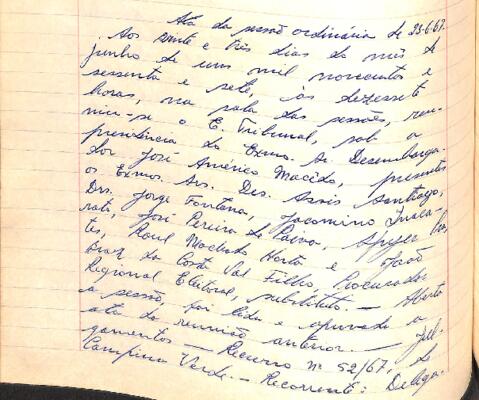 Ata da sessão ordinária de 23-6-67.
Aos vinte e três dias do mês de
junho de um mil novecentos e
sessenta e sete, às dezessete
horas, na sala das sessões, reu-
niu-se o E. Tribunal, sob a
presidência do Exmo. Sr. Desembarga-
dor José Américo Macêdo, presentes
os Exmos. Srs. Des. Assis Santiago,
Drs. Jorge Fontana, Jacomino Inaca-
rato, José Pereira de Paiva,
tes, Raul Machado Horta e João
Braz da Costa Val Filho, Procurador
Regional Eleitoral, substituto. — Aberta
a sessão, foi lida e aprovada a
ata da reunião anterior. — Jul-
gamentos — Recurso nº 52/67, de
Campina Verde. — Recorrente: Delega-